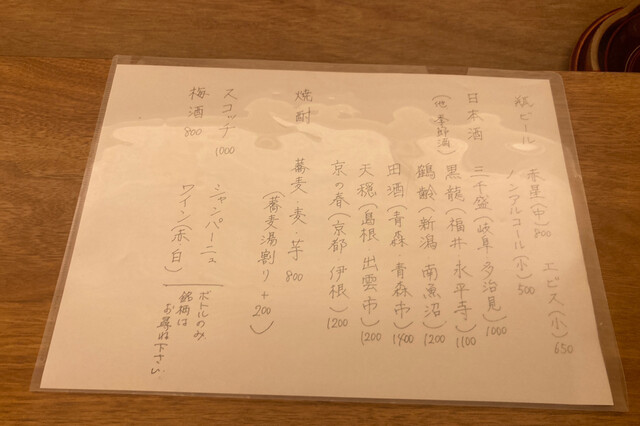 瓶ビール
赤星(中)800 エビス(小)650
ノンアルコール(小)500
日本酒
(他 季節酒)
三千盛(岐阜・多治見)1000
黒龍(福井 永平寺)1100
鶴齢(新潟 南魚沼)1200
田酒(青森・青森市)1400
天穏(島根 出雲市)1200
京の春(京都 伊根)1200
焼酎
蕎麦・麦・芋 800
(蕎麦湯割り+200)
スコッチ 1000
梅酒 800
シャンパーニュ
ワイン(赤・白)
ボトルのみ
銘柄は
お尋ね下さい